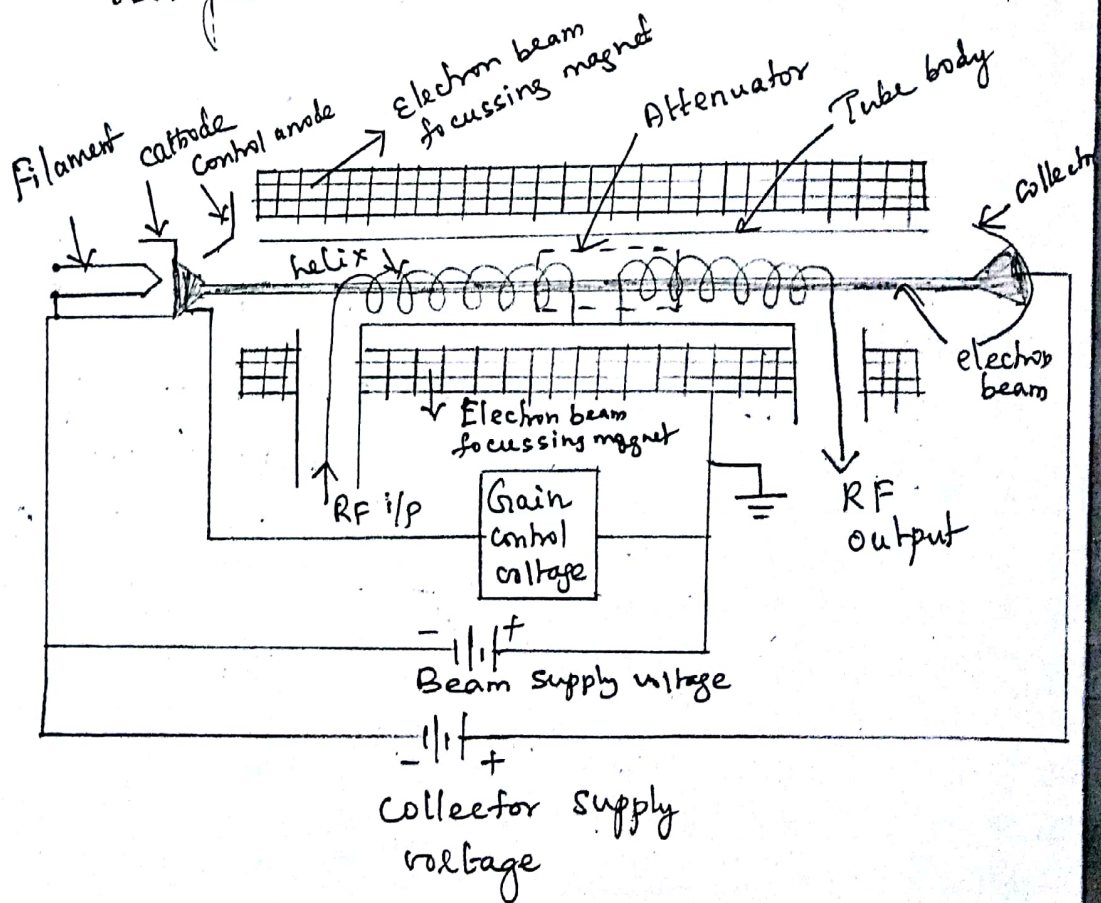 Filament
cathode
control anode
Electron beam
focussing magnet
Attenuator
Tube body
collecto
helix
electron
beam
Electron beam
focussing magnet
RF i/p
Gain
control
voltage
RF
output
- +
Beam supply voltage
- +
collector supply
voltage